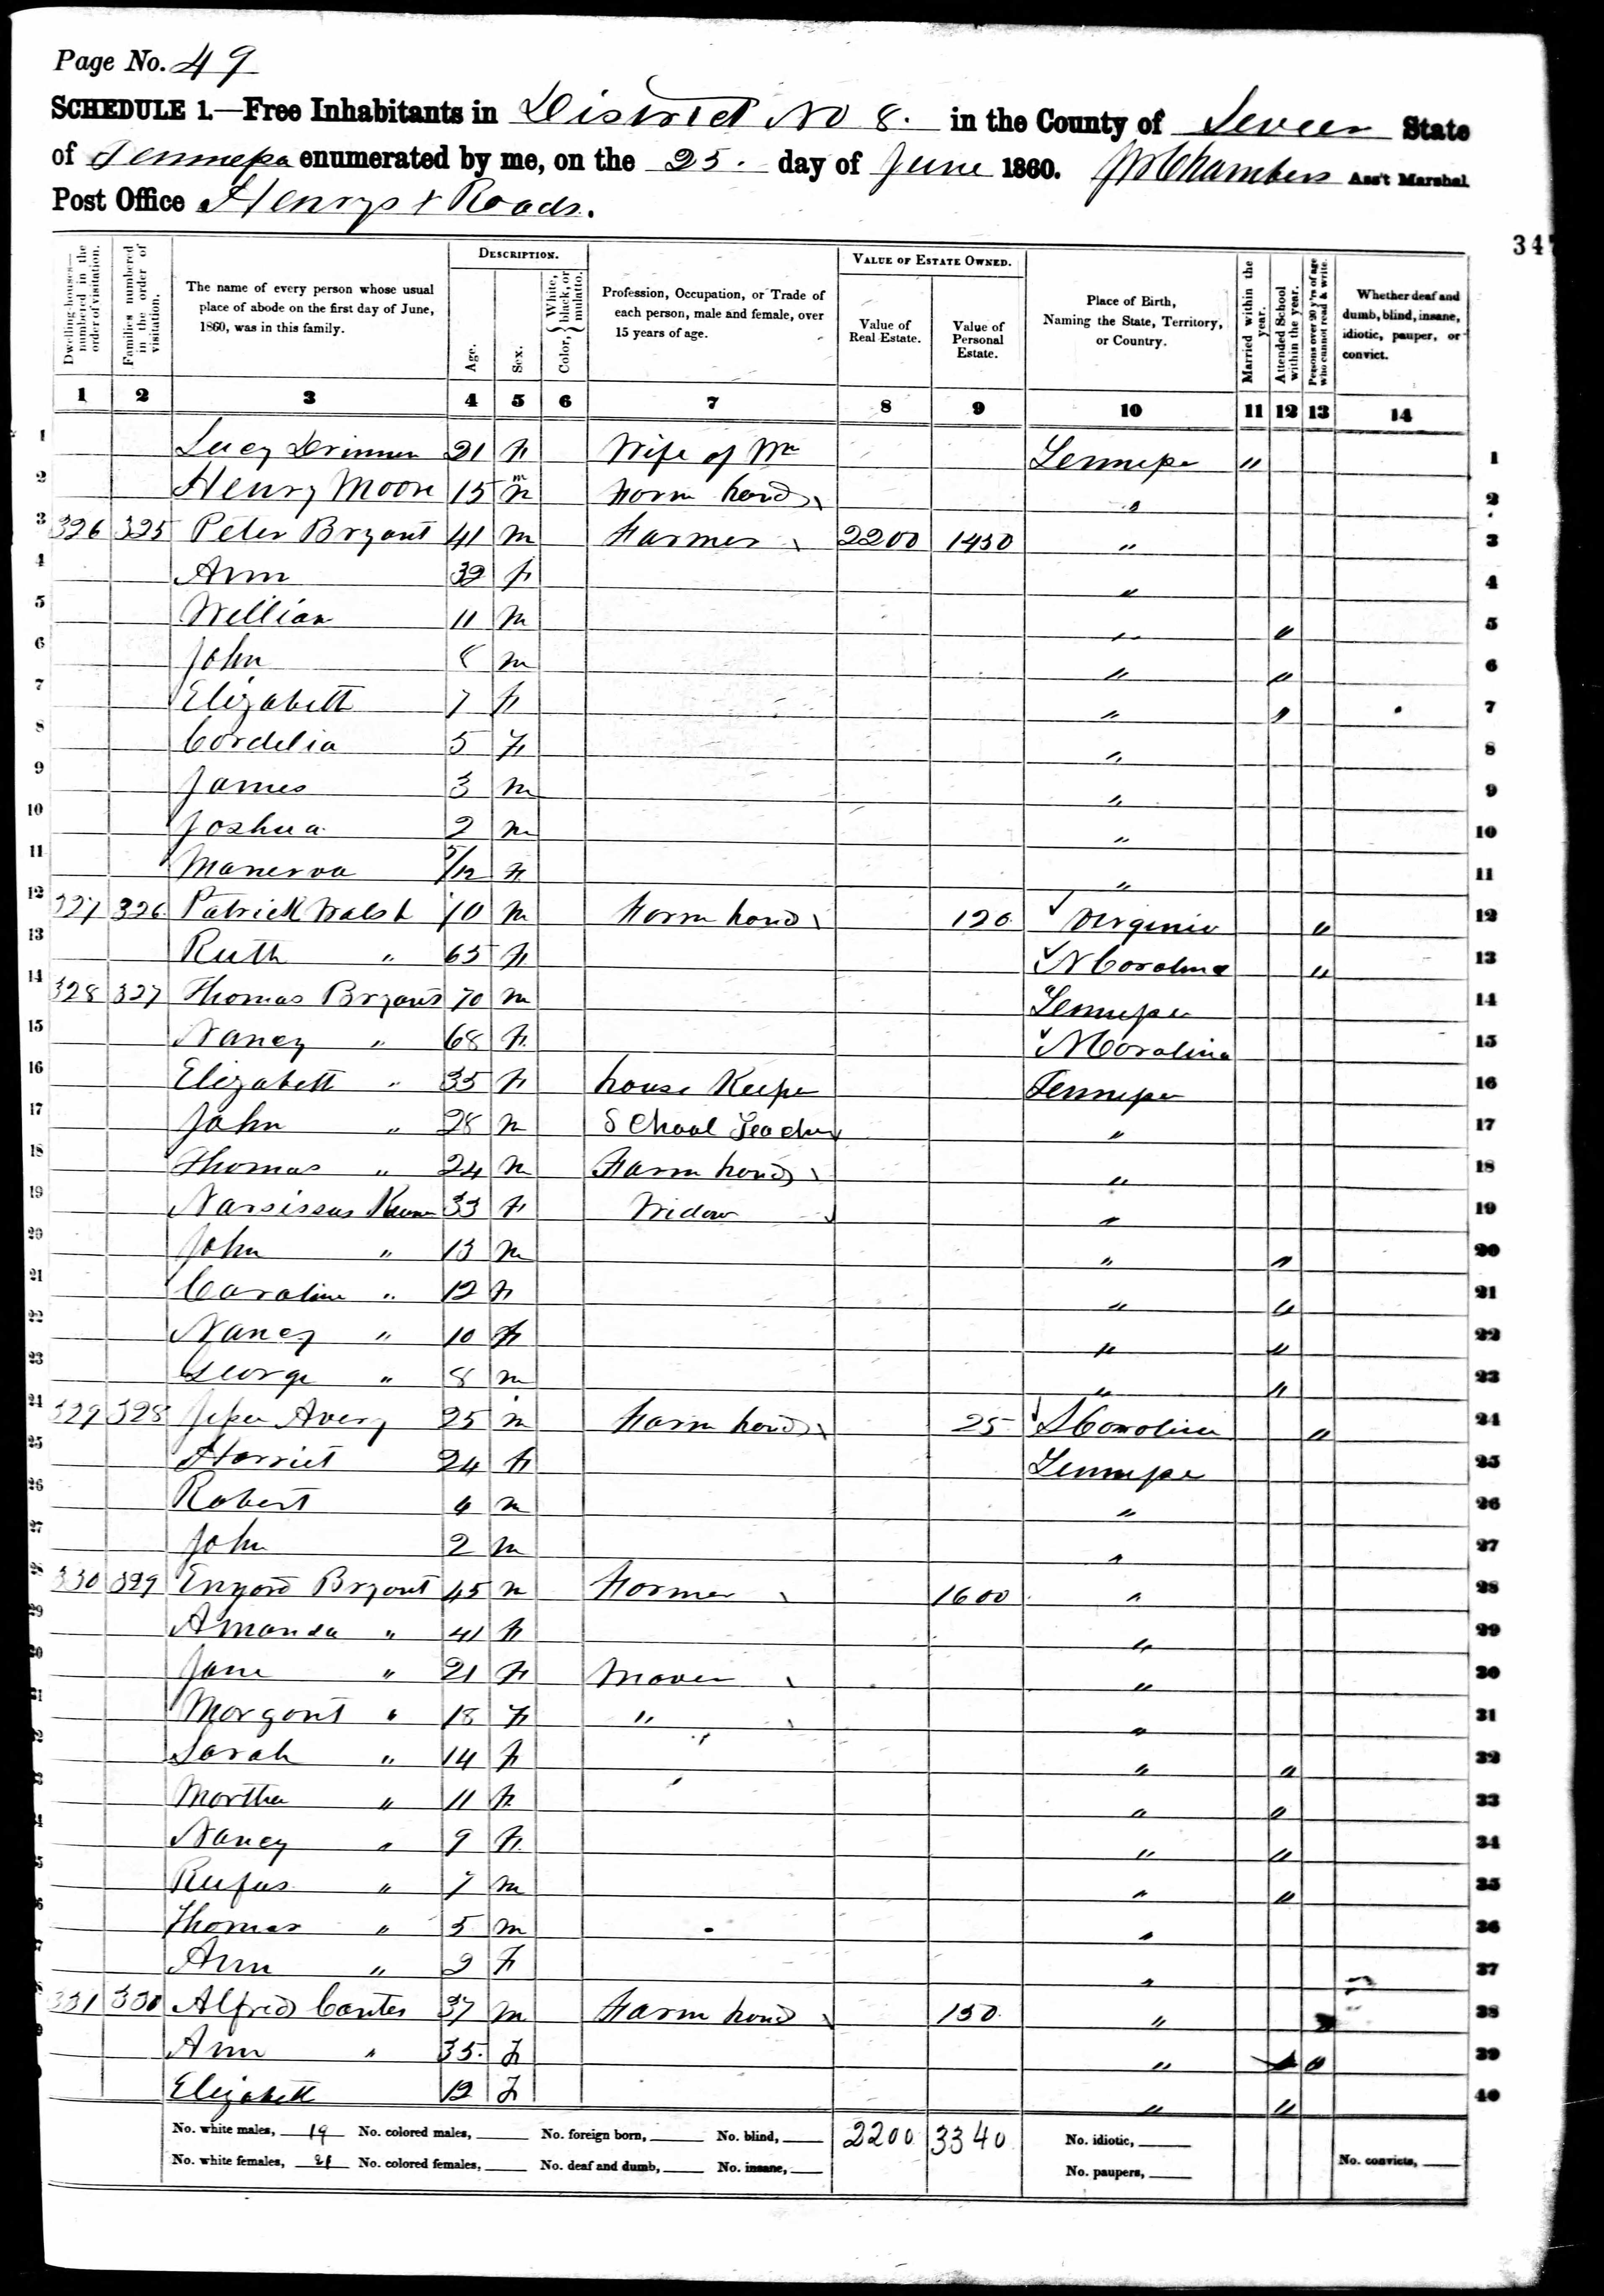 Page No. 49
SCHEDULE 1.—Free Inhabitants in District No 8. in the County of Sevier State
of Tennessee enumerated by me, on the 25. day of June 1860. Chambers Ass't Marshal
Post Office Henrys + Roads.
347
Dwelling-houses— numbered in the order of visitation. Families numbered in the order of visitation. The name of every person whose usual place of abode on the first day of June, 1860, was in this family. DESCRIPTION. Age. Sex. Color, { White, black, or mulatto. Profession, Occupation, or Trade of each person, male and female, over 15 years of age. VALUE OF ESTATE OWNED. Value of Real Estate. Value of Personal Estate. Place of Birth, Naming the State, Territory, or Country. Married within the year. Attended School within the year. Persons over 20 y'rs of age who cannot read & write. Whether deaf and dumb, blind, insane, idiotic, pauper, or convict.
1 2 3 4 5 6 7 8 9 10 11 12 13 14
1 Lucy 21 f Wife of Tennessee " 1
2 Henry Moon 15 m Farm hand " 2
3 326 325 Peter Bryant 41 m Farmer 2200 1450 " 3
4 Ann 39 f " 4
5 William 11 m " " 5
6 John 8 m " " 6
7 Elizabeth 7 f " " 7
8 Cordelia 5 f " 8
9 James 3 m " 9
10 Joshua 2 m " 10
11 Manerva /12 f " 11
12 327 326 Patrick Walsh 70 m Farm hand 120 Virginia " 12
13 Ruth " 65 f N Carolina " 13
14 328 327 Thomas Bryant 70 m Tennessee 14
15 Nancy " 68 f N Carolina 15
16 Elizabeth " 35 f house Keeper Tennessee 16
17 John " 28 m School Teacher " 17
18 Thomas " 24 m Farm hand " 18
19 Narsissus 33 f Widow " 19
20 John " 13 m " " 20
21 Caroline " 12 f " " 21
22 Nancy " 10 f " " 22
23 George " 8 m " " 23
24 329 328 Jesse Avery 25 m Farm hand 25 S Carolina " 24
25 Harriet 24 f Tennessee 25
26 Robert 4 m " 26
27 John 2 m " 27
28 330 329 Bryant 45 m Farmer 1600 " 28
29 Amanda " 41 f " 29
30 Jane " 21 f " 30
31 Margart " 18 f " " 31
32 Sarah " 14 f " " 32
33 Martha " 11 f " " 33
34 Nancy " 9 f " " 34
35 Rufus " 7 m " " 35
36 Thomas " 5 m " 36
37 Ann " 2 f " 37
331 330 Alfred 37 m Farm hand 150 " 38
Ann " 35. f " " 39
Elizabeth 12 f " " 40
No. white males, 19 No. colored males, No. foreign born, No. blind, 2200 3340 No. idiotic,
No. white females, 21 No. colored females, No. deaf and dumb, No. insane, No. paupers, No. convicts,